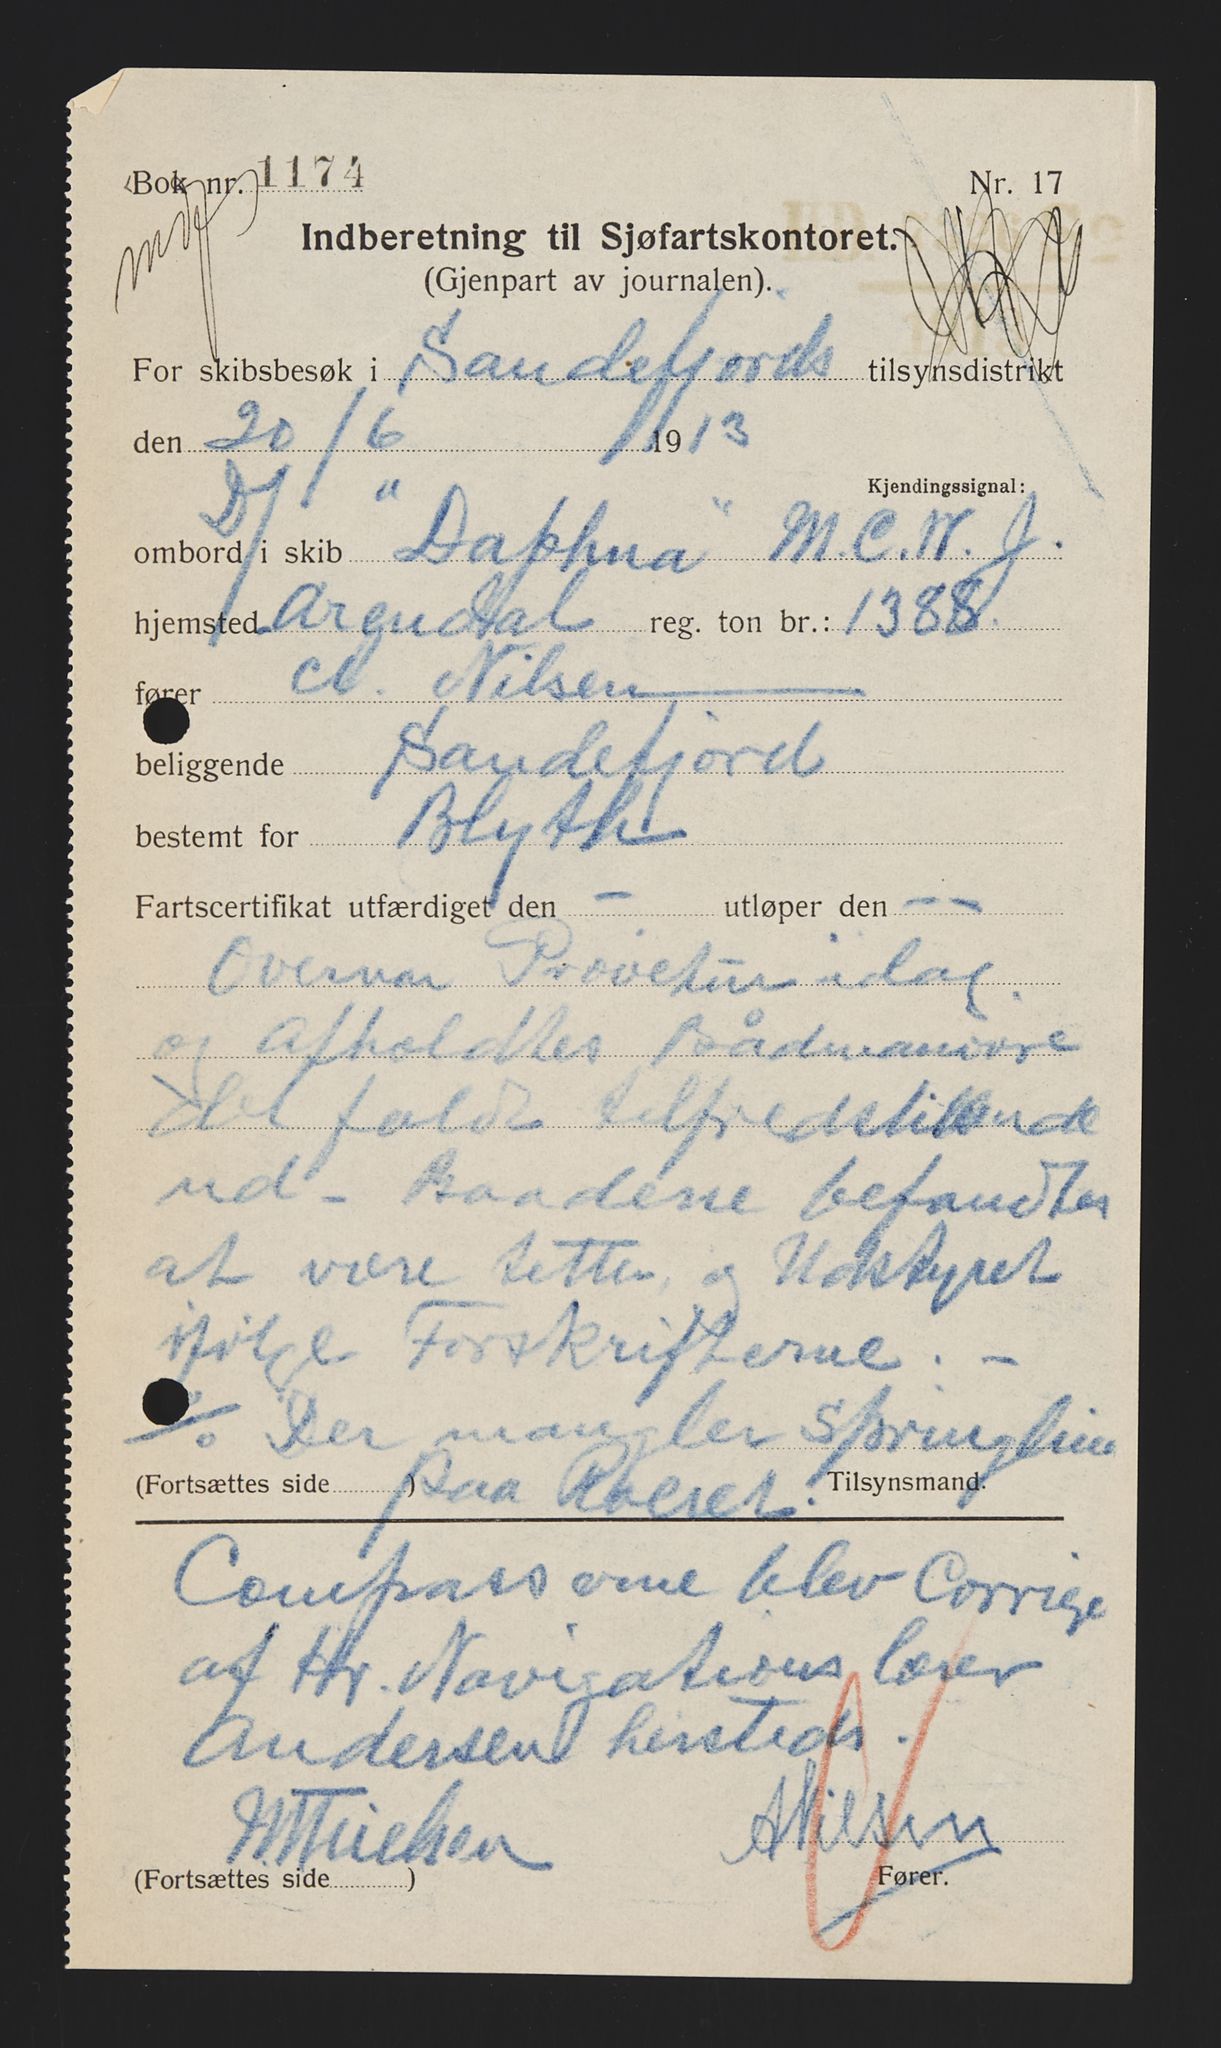 Bok nr. 1174
Nr. 17
Indberetning til Sjøfartskontoret.
(Gjenpart av journalen).
For skibsbesøk i Sandefjords tilsynsdistrikt
den 20/6 1913
Kjendingssignal:
ombord i skib D/ "Daphna" M.C.W.J.
hjemsted Arendal reg. ton br.: 1388.
fører A. Nilsen
beliggende Sandefjord
bestemt for Blyth
Fartscertifikat utfærdiget den – utløper den – –
Overvar Prøvetur idag
og Afholdtes Bådmanøvre
det faldt tilfredstillende
ud – Baadene befandtes
at være tette, og Udstyret
ifølge Forskrifterne. –
% Der mangler Springline
(Fortsættes side ) paa Roeret. Tilsynsmand.
Compasserne blev Corrige
af Hr. Navigations lærer
Andersen hersteds.
A Nilsen
(Fortsættes side ) Fører.